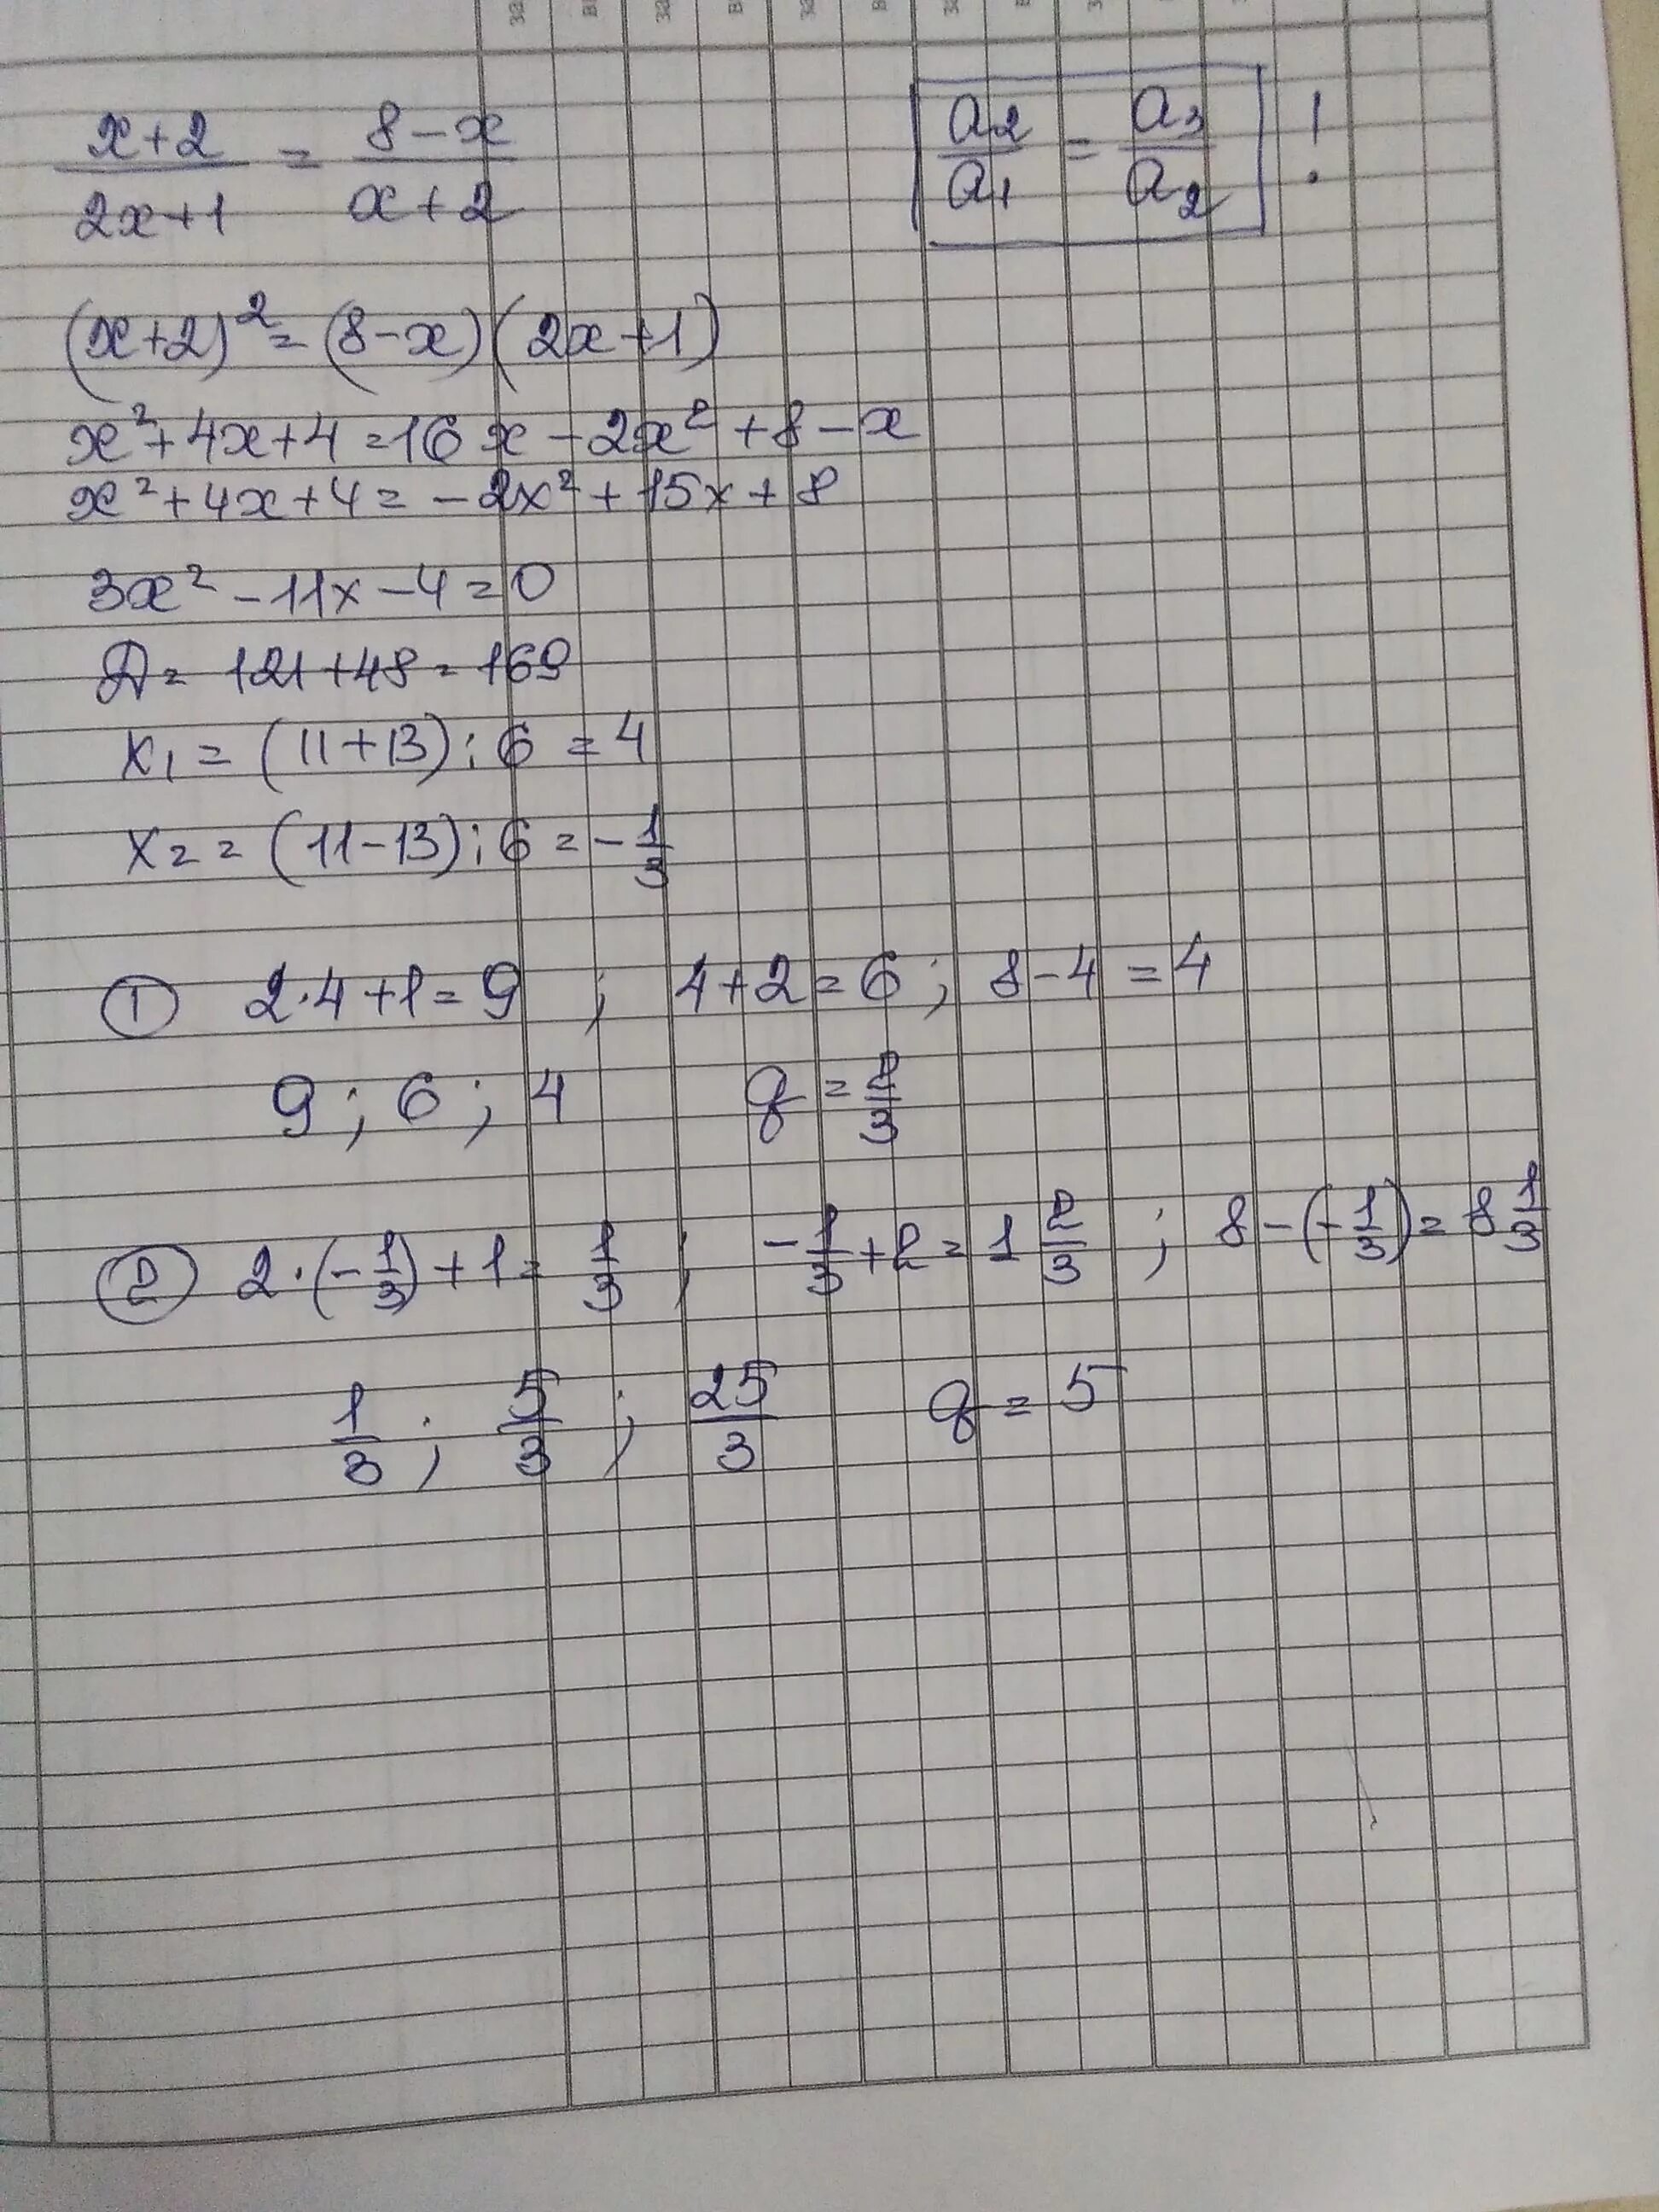 x+2/2x+1 = 8-x/x+2
a2/a1 = a3/a2 !
(x+2)² = (8-x)(2x+1)
x²+4x+4=16x-2x²+8-x
x²+4x+4=-2x²+15x+8
3x²-11x-4=0
D=121+48=169
x1=(11+13):6=4
x2=(11-13):6=-1/3
① 2·4+1=9 ; 4+2=6 ; 8-4=4
9 ; 6 ; 4 q=2/3
② 2·(-1/3)+1=1/3 ; -1/3+2=1 2/3 ; 8-(-1/3)=8 1/3
1/3 ; 5/3 ; 25/3 q=5